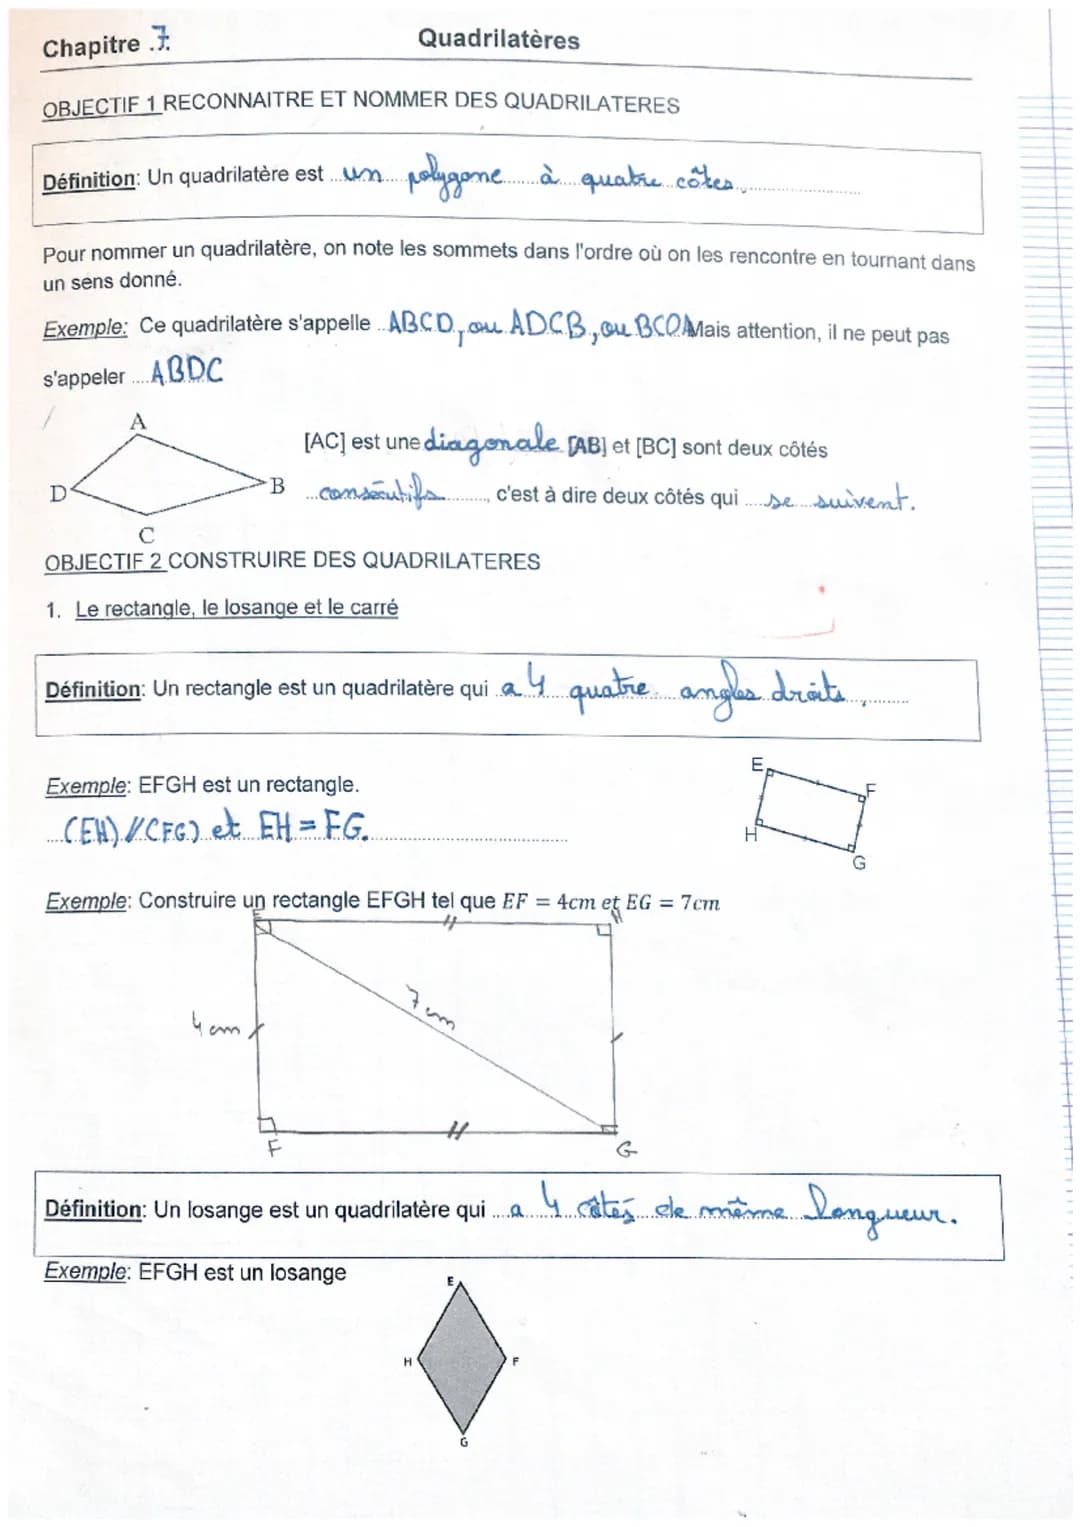 Chapitre .7.
Quadrilatères
OBJECTIF 1 RECONNAITRE ET NOMMER DES QUADRILATERES
Définition: Un quadrilatère est un polygone à quatre côtes.
Pour nommer un quadrilatère, on note les sommets dans l'ordre où on les rencontre en tournant dans
un sens donné.
Exemple: Ce quadrilatère s'appelle ABCD, ou ADCB, ou BCDA Mais attention, il ne peut pas
s'appeler ABDC
A
D
B
C
[AC] est une diagonale [AB] et [BC] sont deux côtés
consécutifs, c'est à dire deux côtés qui se suivent.
OBJECTIF 2 CONSTRUIRE DES QUADRILATERES
1. Le rectangle, le losange et le carré
Définition: Un rectangle est un quadrilatère qui a 4 quatre angles droits.
Exemple: EFGH est un rectangle.
(EH) // (FG) et EH = FG.
E
F
H
G
Exemple: Construire un rectangle EFGH tel que EF = 4cm et EG = 7cm
E
H
7 cm
4 cm
F
G
Définition: Un losange est un quadrilatère qui a 4 côtés de même longueur.
Exemple: EFGH est un losange
E
H
F
G